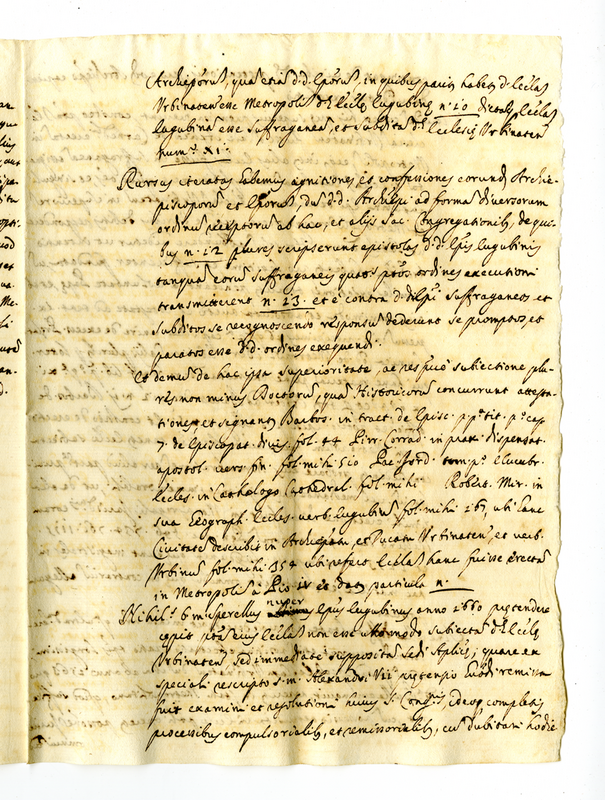 Archiep̃orũ, quã etiã d.d. Ep̃orũ, in quibus paritr̃ habetr̃ d. Ecclãs
Urbinateñ esse Metropolis dtæ Ecclæ Eugubinę n.º 10 dictaq̃ Ecclãs
Eugubinã esse suffraganeã, et subditã dtæ Ecclesię Urbinateñ
num.º XI.
Rursus iteratas habemus agnitiones et confessiones eorundẽ Archie-
piscoporũ et Ep̃orũ, dũ d.d. Archiep̃i ad formã diversorum
ordinũ receptorũ ab hac, et alijs Sac. Congregationib9, de qui-
bus n. 12 plures scripserunt epistolas d.d. Ep̃is Eugubinis
tanquã eorũ suffraganeis quatos ptõs ordines executioni
transmitterent n. 13. et è contra d.d. Ep̃i suffraganeos et
subditos se recognoscendo responsũ dederunt se promptos, et
paratos esse d.d. ordines exequendi.
Et demũ de hac ipsa superioritate, ac respectiè subiectione plu-
res non minus Doctorũ, quã Historicorũ concurrunt attesta-
tiones et signantr̃ Barbos. in tract. de Episc. p. p.ª tit. p.º cap.
7. de Episcopat. divis. fol. 44 Pirr. Corrad. in prax. dispensat.
apostol. vers. fin. fol. mihi 510 Pac. Jord. tom. p.º elucubr.
Eccles. in Cathologo Cathedral. fol. mihi Robert. Mir. in
sua Geograph. Eccles. verb. Eugubium fol. mihi 167, ubi hanc
Civitatẽ describit in Archiep̃atu, et Ducatu Urbinateñ, et verb.
Urbinũ fol. mihi 354 ubi refert Ecclãs hanc fuisse erectã
in Metropolis à Pio IV ex datr̃ particula n.
Nihil.ˢ R. m. Sperellus nuper Ep̃us Eugubinus anno 1660 prętendere
cępit ptãs eius Ecclãs non esse ullo modo subiectã dtæ Ecclę
Urbinateñ, sed immediatè suppositã Sedi Aplicę, quare ex
speciali rescripto s. m. Alexandri VII prętensio hmõi remissa
fuit examini et resolutioni huius S. Congñis, ideoq̃ completis
processibus compulsorialib9, et remissorialib9, cũ dubitari hodie